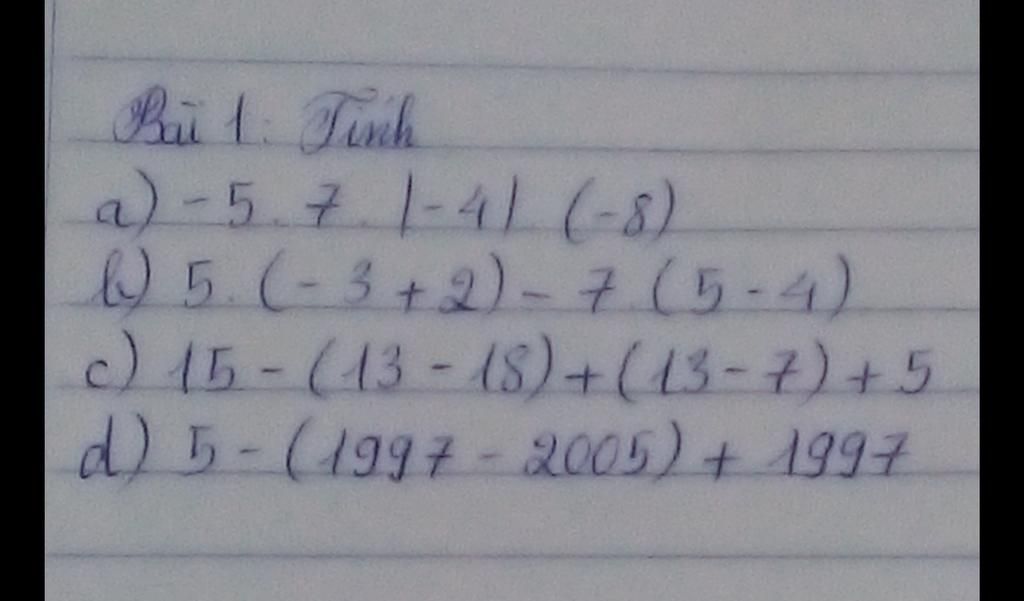 Bài 1: Tính
a) - 5 . 7 . |-4| . (-8)
b) 5 . (- 3 + 2) - 7 . (5 - 4)
c) 15 - (13 - 18) + (13 - 7) + 5
d) 5 - (1997 - 2005) + 1997